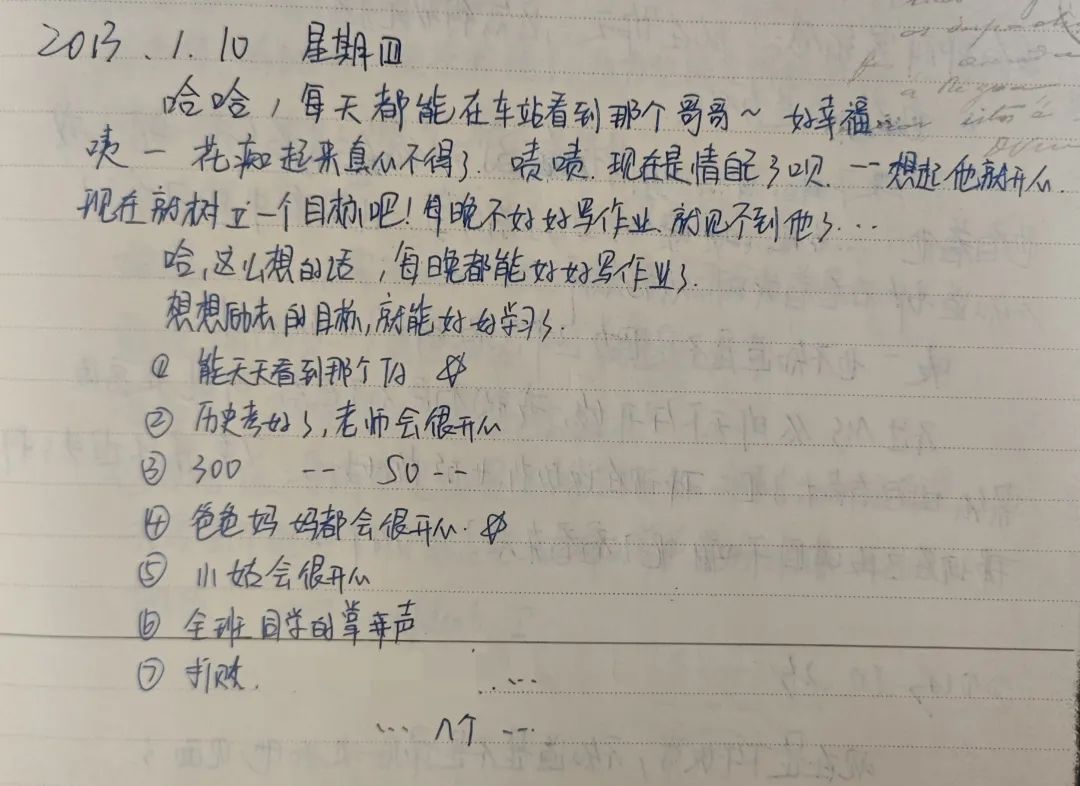 2013.1.10 星期四
哈哈,每天都能在车站看到那个哥哥~ 好幸福..
咦一 花痴起来真从不得了. 啧啧.现在是情自己了呗. 一想起他就开心.
现在就树立一个目标吧!每晚不好好写作业 就见不到他了...
哈,这么想的话,每日晚都能好好写作业了.
想想励志的目标,就能好好学习了.
① 能天天看到那个TA
② 历史考好了,老师会很开心
③ 300 -- 50 --
④ 爸爸妈妈都会很开心.
⑤ 小姑会很开心
⑥ 全班同学的掌声
⑦ 打败. ...
... 八个 ...